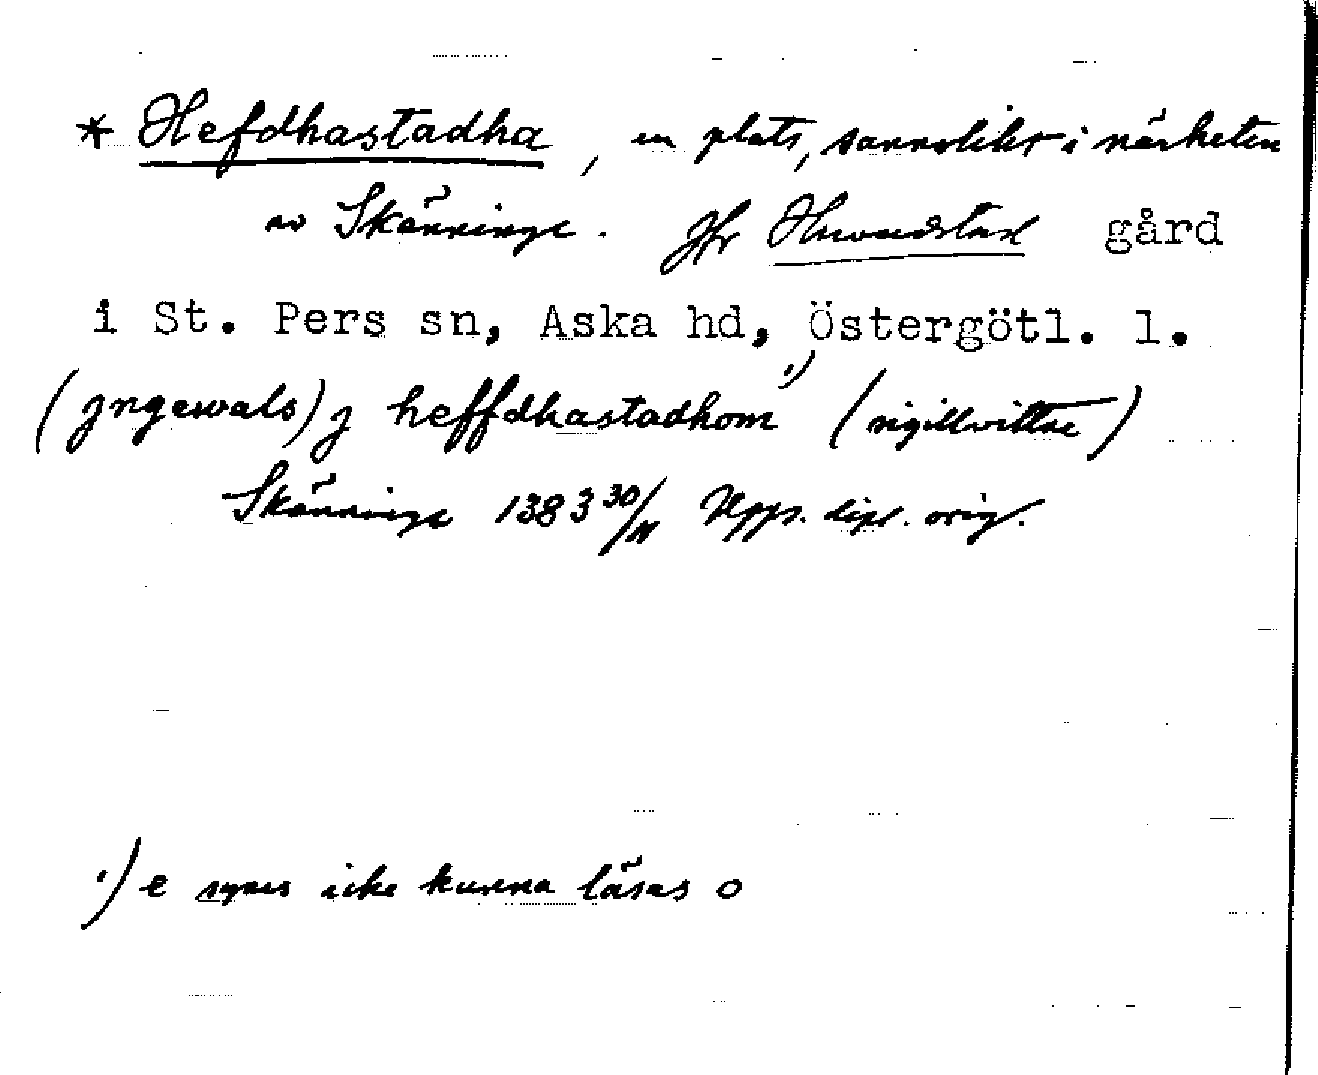 * Hefdhastadha, en plats, sannolikt i närheten
av Skänninge. Jfr Huvudstad gård
i St. Pers sn, Aska hd, Östergötl. l.
(jngewals) j heffdhastadhom ¹) (sigillvittne)
Skänninge 1383 30/11 Upps. dipl. orig.
¹) e synes icke kunna läsas o